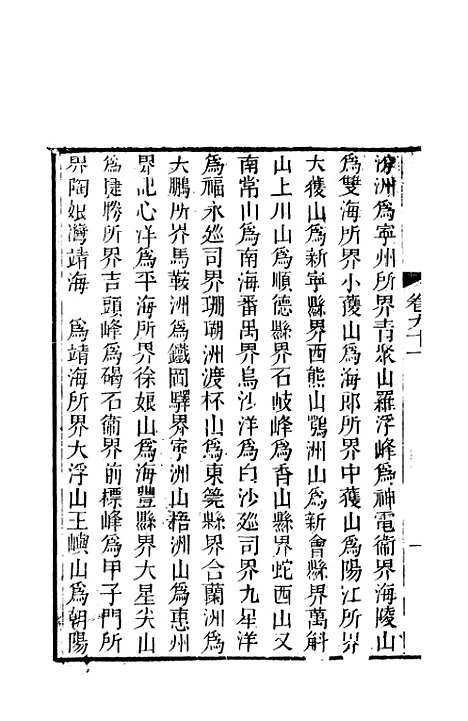 汾洲爲寧州所界靑聚山羅浮峰爲神電衛界海陵山
爲雙海所界小蓌山爲海郎所界中蓌山爲陽江所界
大蓌山爲新寧縣界西熊山鶚洲山爲新會縣界萬斛
山上川山爲順德縣界石岐峰爲香山縣界蛇西山又
南常山爲南海番禺界烏沙洋爲白沙廵司界九星洋
爲福永廵司界珊瑚洲渡杯山爲東筦縣界合蘭洲爲
大鵬所界馬鞍洲爲鐵岡驛界寧洲山梧洲山爲惠州
界記心洋爲平海所界徐娘山爲海豐縣界大星尖山
爲捷勝所界吉頭峰爲碣石衞界前標峰爲甲子門所
界陶娘灣靖海　爲靖海所界大浮山王嶼山爲朝陽
卷九十一
一